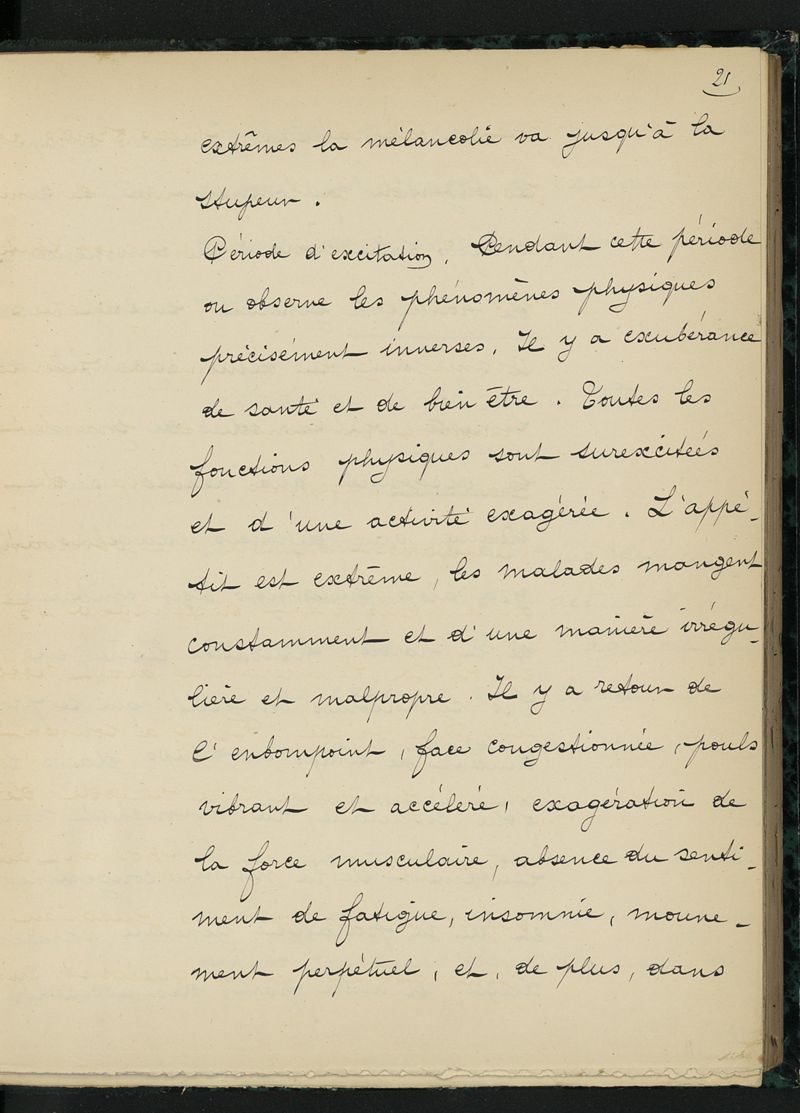 21
extrêmes la mélancolie va jusqu'à la
stupeur.
Période d'excitation. Pendant cette période
on observe les phénomènes physiques
précisément inverses. Il y a exubérance
de santé et de bien être. Toutes les
fonctions physiques sont surexcitées
et d'une activité exagérée. L'appé-
tit est extrême, les malades mangent
constamment et d'une manière irrégu-
lière et malpropre. Il y a retour de
l'enbompoint, face congestionnée, pouls
vibrant et accéléré, exagération de
la force musculaire, absence du senti-
ment de fatigue, insomnie, mouve-
ment perpétuel, et, de plus, dans